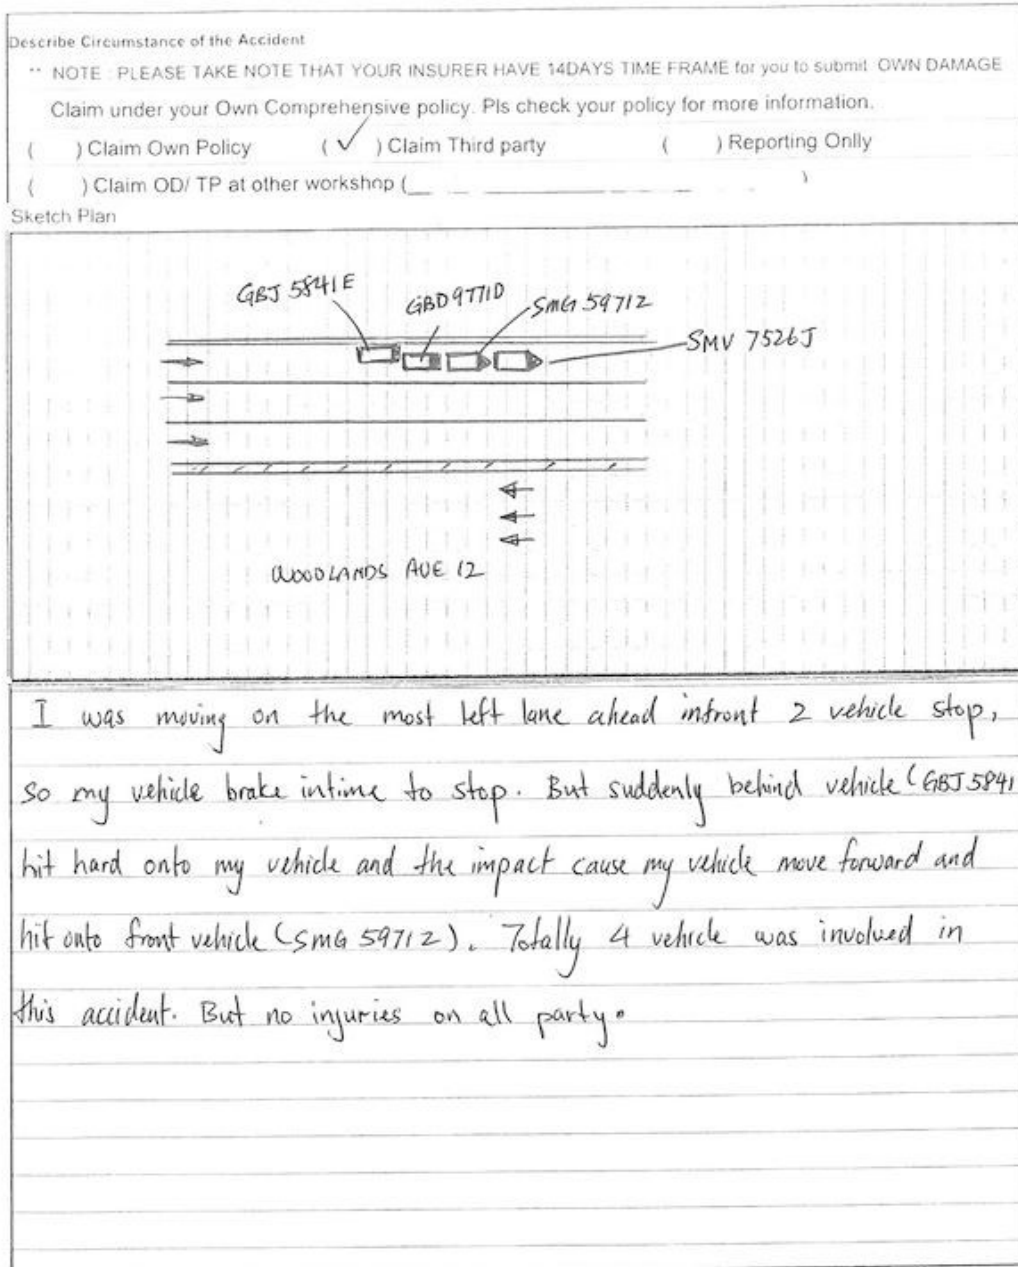 Describe Circumstance of the Accident
** NOTE : PLEASE TAKE NOTE THAT YOUR INSURER HAVE 14DAYS TIME FRAME for you to submit OWN DAMAGE
Claim under your Own Comprehensive policy. Pls check your policy for more information.
( ) Claim Own Policy ( ✓ ) Claim Third party ( ) Reporting Onlly
( ) Claim OD/ TP at other workshop ( )
Sketch Plan
GBJ 5841E
GBD9771D
SMG 5971Z
SMV 7526J
WOODLANDS AVE 12
I was moving on the most left lane ahead infront 2 vehicle stop,
so my vehicle brake intime to stop. But suddenly behind vehicle (GBJ5841
hit hard onto my vehicle and the impact cause my vehicle move forward and
hit onto front vehicle (SMG 5971Z). Totally 4 vehicle was involved in
this accident. But no injuries on all party.